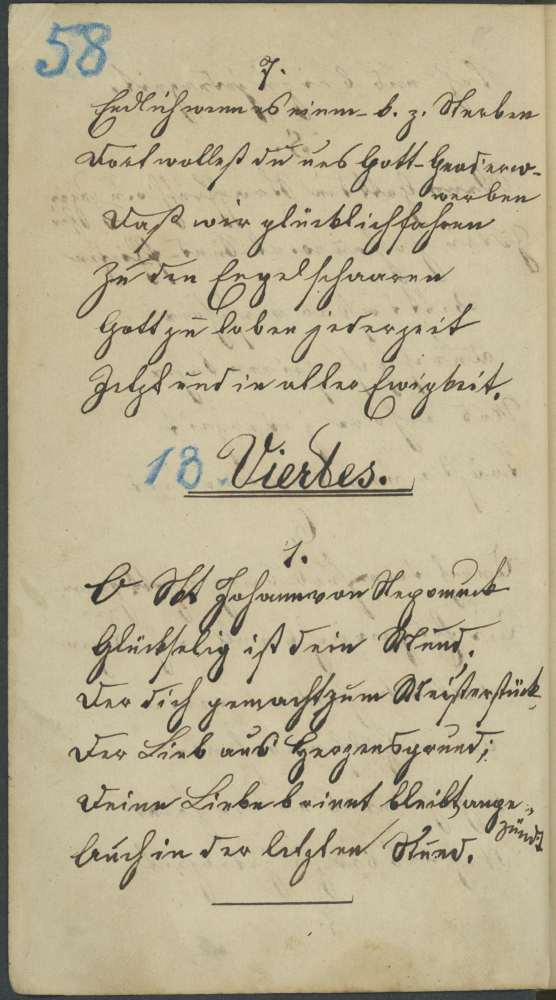 58
7.
Endlich wenn es einem b. z. Sterben
Dort wollest du uns Gott Gnad erw-
werben
Daß wir glücklich fahren
Zu den Engelschaaren
Gott zu loben jederzeit
Jetzt und in aller Ewigkeit.
18. Viertes.
1.
O Skt Johann von Nepomuck
Glückselig ist dein Mund,
Der dich gemacht zum Meisterstück
Der Lieb aus Herzensgrund;
Deine Liebe brinnt bleibt ange-
zündt
Auch in der letzten Stund.